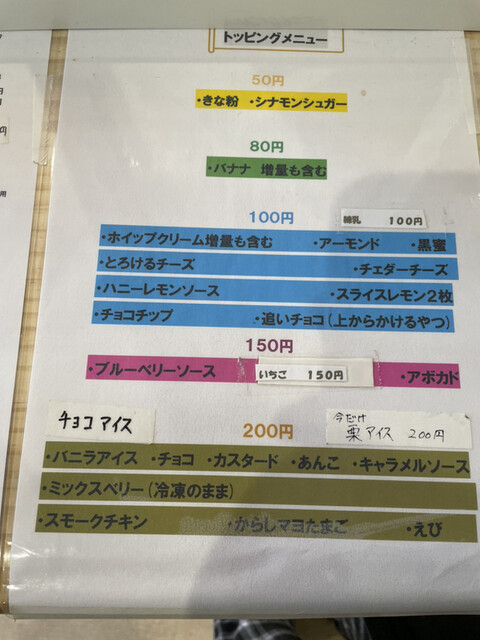 トッピングメニュー
50円
・きな粉 ・シナモンシュガー
80円
・バナナ 増量も含む
100円 練乳 100円
・ホイップクリーム増量も含む ・アーモンド ・黒蜜
・とろけるチーズ ・チェダーチーズ
・ハニーレモンソース ・スライスレモン2枚
・チョコチップ ・追いチョコ(上からかけるやつ)
150円
・ブルーベリーソース いちご 150円 ・アボカド
チョコアイス 200円 今だけ
栗アイス 200円
・バニラアイス ・チョコ ・カスタード ・あんこ ・キャラメルソース
・ミックスベリー(冷凍のまま)
・スモークチキン ・からしマヨたまご ・えび